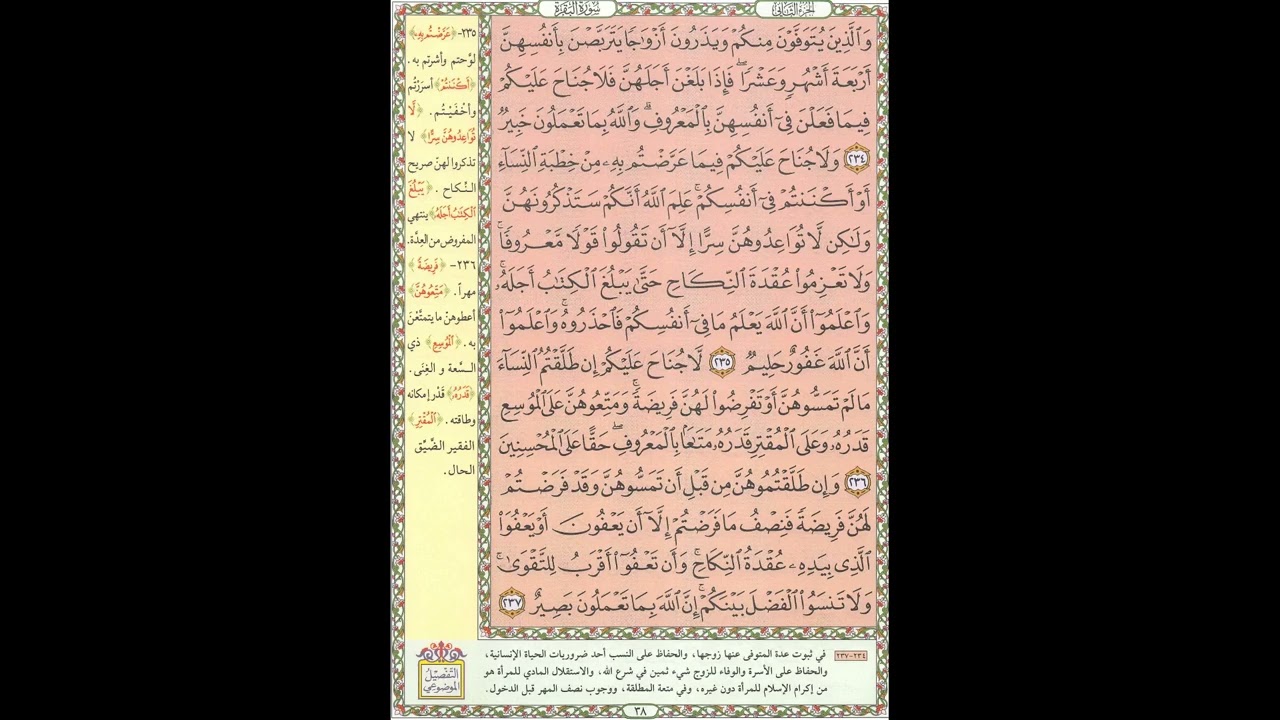 الجزء الثاني
سورة البقرة
وَٱلَّذِينَ يُتَوَفَّوْنَ مِنكُمْ وَيَذَرُونَ أَزْوَٰجًا يَتَرَبَّصْنَ بِأَنفُسِهِنَّ
أَرْبَعَةَ أَشْهُرٍ وَعَشْرًا ۖ فَإِذَا بَلَغْنَ أَجَلَهُنَّ فَلَا جُنَاحَ عَلَيْكُمْ
فِيمَا فَعَلْنَ فِىٓ أَنفُسِهِنَّ بِٱلْمَعْرُوفِ ۗ وَٱللَّهُ بِمَا تَعْمَلُونَ خَبِيرٌ
٢٣٤ وَلَا جُنَاحَ عَلَيْكُمْ فِيمَا عَرَّضْتُم بِهِۦ مِنْ خِطْبَةِ ٱلنِّسَآءِ
أَوْ أَكْنَنتُمْ فِىٓ أَنفُسِكُمْ ۚ عَلِمَ ٱللَّهُ أَنَّكُمْ سَتَذْكُرُونَهُنَّ
وَلَٰكِن لَّا تُوَاعِدُوهُنَّ سِرًّا إِلَّآ أَن تَقُولُوا۟ قَوْلًا مَّعْرُوفًا ۚ
وَلَا تَعْزِمُوا۟ عُقْدَةَ ٱلنِّكَاحِ حَتَّىٰ يَبْلُغَ ٱلْكِتَٰبُ أَجَلَهُۥ ۚ
وَٱعْلَمُوٓا۟ أَنَّ ٱللَّهَ يَعْلَمُ مَا فِىٓ أَنفُسِكُمْ فَٱحْذَرُوهُ ۚ وَٱعْلَمُوٓا۟
أَنَّ ٱللَّهَ غَفُورٌ حَلِيمٌ ٢٣٥ لَّا جُنَاحَ عَلَيْكُمْ إِن طَلَّقْتُمُ ٱلنِّسَآءَ
مَا لَمْ تَمَسُّوهُنَّ أَوْ تَفْرِضُوا۟ لَهُنَّ فَرِيضَةً ۚ وَمَتِّعُوهُنَّ عَلَى ٱلْمُوسِعِ
قَدَرُهُۥ وَعَلَى ٱلْمُقْتِرِ قَدَرُهُۥ مَتَٰعًۢا بِٱلْمَعْرُوفِ ۖ حَقًّا عَلَى ٱلْمُحْسِنِينَ
٢٣٦ وَإِن طَلَّقْتُمُوهُنَّ مِن قَبْلِ أَن تَمَسُّوهُنَّ وَقَدْ فَرَضْتُمْ
لَهُنَّ فَرِيضَةً فَنِصْفُ مَا فَرَضْتُمْ إِلَّآ أَن يَعْفُونَ أَوْ يَعْفُوَا۟
ٱلَّذِى بِيَدِهِۦ عُقْدَةُ ٱلنِّكَاحِ ۚ وَأَن تَعْفُوٓا۟ أَقْرَبُ لِلتَّقْوَىٰ ۚ
وَلَا تَنسَوُا۟ ٱلْفَضْلَ بَيْنَكُمْ ۚ إِنَّ ٱللَّهَ بِمَا تَعْمَلُونَ بَصِيرٌ ٢٣٧
٢٣٥- ﴿عَرَّضْتُم بِهِ﴾
لوّحتم وأشرتم به.
﴿أَكْنَنتُمْ﴾ أسرَرْتُم
وأخْفَيْتُم. ﴿لَا
تُوَاعِدُوهُنَّ سِرًّا﴾ لا
تذكروا لهنّ صريح
النّكاح. ﴿يَبْلُغَ
ٱلْكِتَٰبُ أَجَلَهُ﴾ ينتهي
المفروض من العِدَّة.
٢٣٦- ﴿فَرِيضَةً﴾
مهراً. ﴿مَتِّعُوهُنَّ﴾
أعطوهنّ ما يتمتَّعْنَ
به. ﴿ٱلْمُوسِعِ﴾ ذي
السَّعة و الغِنَى.
﴿قَدَرُهُ﴾ قَدْر إمكانه
وطاقته. ﴿ٱلْمُقْتِرِ﴾
الفقير الضَّيِّق
الحال.
٢٣٤-٢٣٧ في ثبوت عدة المتوفى عنها زوجها، والحفاظ على النسب أحد ضروريات الحياة الإنسانية،
والحفاظ على الأسرة والوفاء للزوج شيء ثمين في شرع الله، والاستقلال المادي للمرأة هو
من إكرام الإسلام للمرأة دون غيره، وفي متعة المطلقة، ووجوب نصف المهر قبل الدخول.
التَّفْصِيلُ
الموضوعي
٣٨